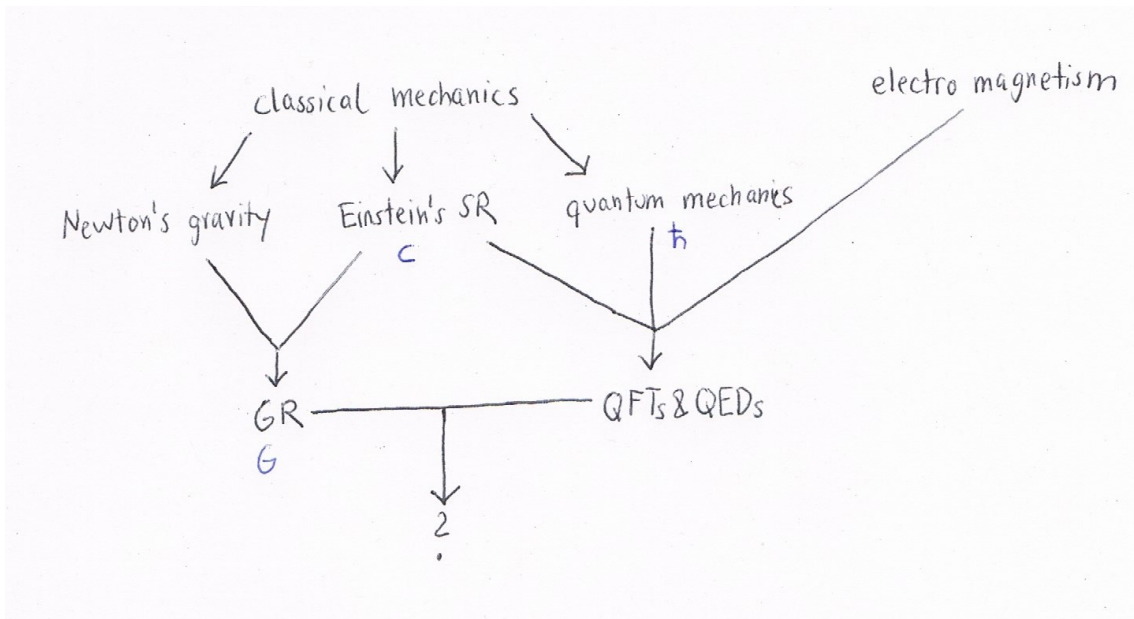 classical mechanics
electro magnetism
Newton's gravity
Einstein's SR
quantum mechanics
c
ħ
GR
QFTs & QEDs
G
?